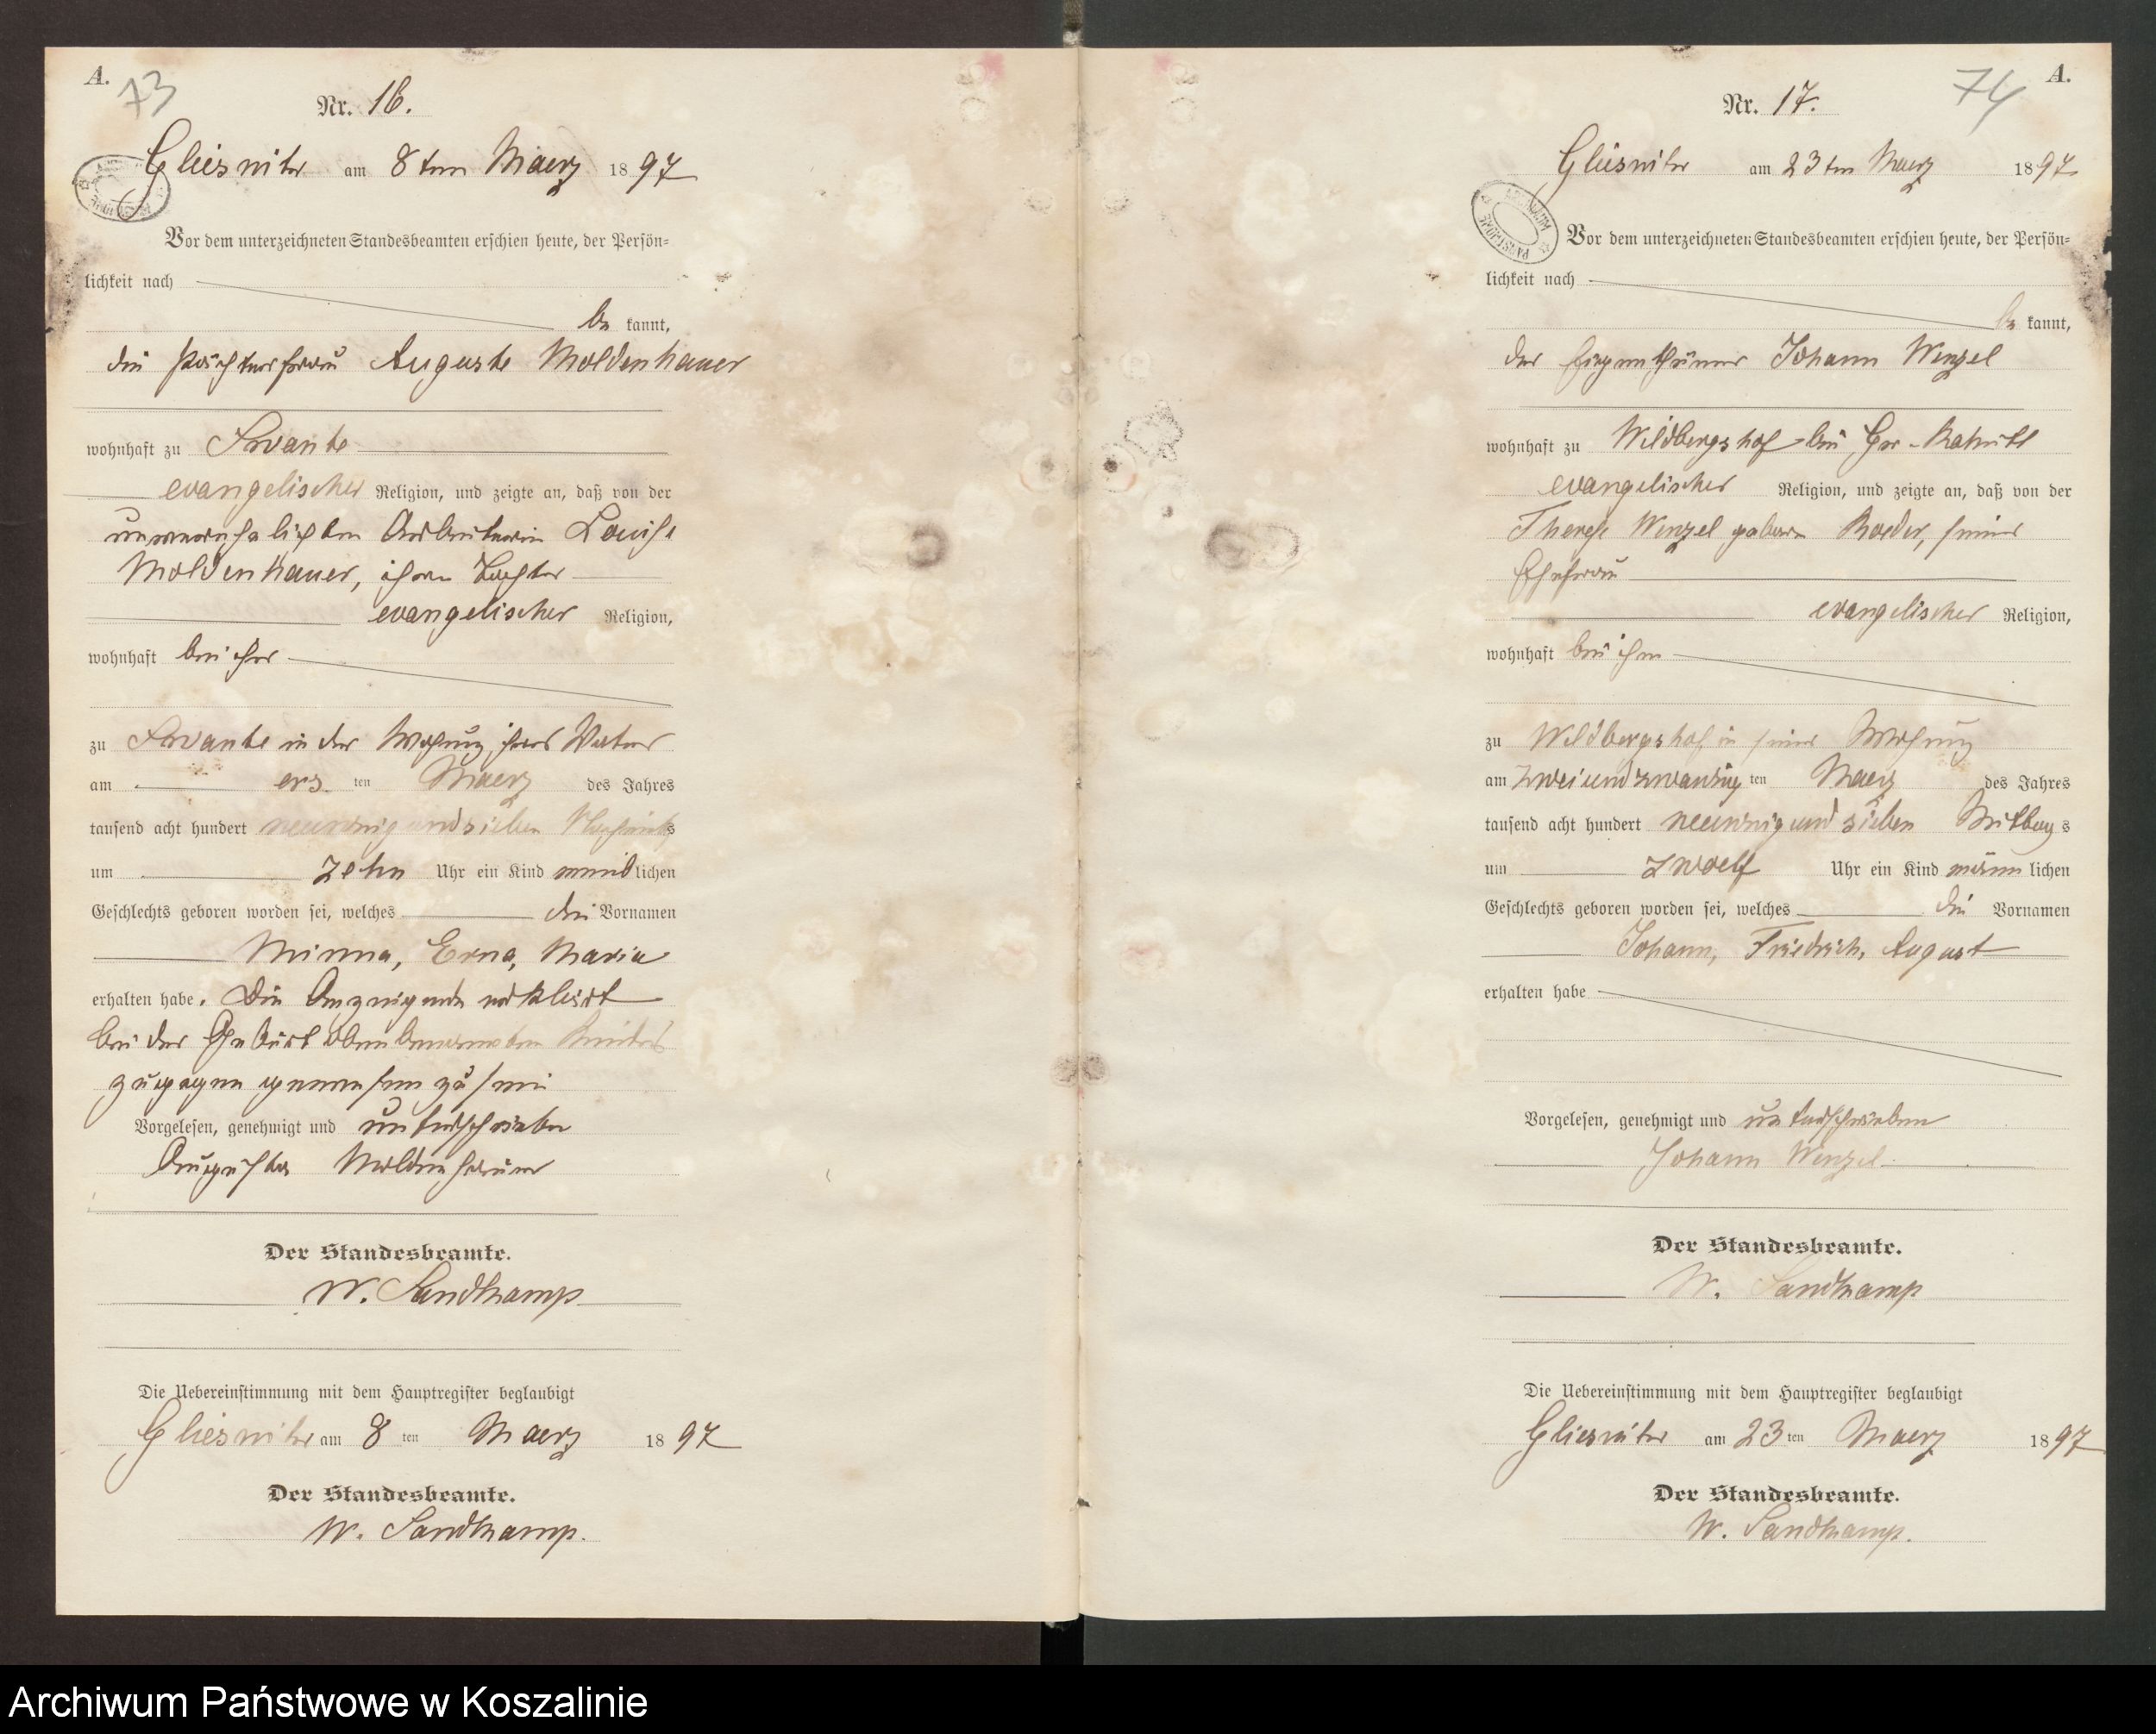 A.
73
Nr. 16.
Gliesnitz am 8ten Maerz 1897
Vor dem unterzeichneten Standesbeamten erschien heute, der Persön=
lichkeit nach
be kannt,
die Pächterfrau Auguste Moldenhauer
wohnhaft zu
evangelischer Religion, und zeigte an, daß von der
unverehelichten Arbeiterin Louise
Moldenhauer, ihrer Tochter
evangelischer Religion,
wohnhaft bei ihr
zu in der Wohnung ihres Vaters
am ers ten Maerz des Jahres
tausend acht hundert neunzig und sieben Nachmittags
um zehn Uhr ein Kind weiblichen
Geschlechts geboren worden sei, welches die Vornamen
Minna, Erna, Maria
erhalten habe. Die Anzeigende erklärt
bei der Geburt obenbenannten Kindes
zugegen gewesen zu sein
Vorgelesen, genehmigt und unterschrieben
Auguste Moldenhauer
Der Standesbeamte.
W. Sandkamp
Die Uebereinstimmung mit dem Hauptregister beglaubigt
Gliesnitz am 8 ten Maerz 1897
Der Standesbeamte.
W. Sandkamp.
A.
74
Nr. 17.
Gliesnitz am 23ten Maerz 1897
Vor dem unterzeichneten Standesbeamten erschien heute, der Persön=
lichkeit nach
be kannt,
der Eigenthümer Johann Wenzel
wohnhaft zu Wildbergshof bei Gr.
evangelischer Religion, und zeigte an, daß von der
Therese Wenzel geborne Roeder, seiner
Ehefrau
evangelischer Religion,
wohnhaft bei ihm
zu Wildbergshof in seiner Wohnung
am zweiundzwanzig ten Maerz des Jahres
tausend acht hundert neunzig und sieben Mittags
um zwoelf Uhr ein Kind männlichen
Geschlechts geboren worden sei, welches die Vornamen
Johann, Friedrich, August
erhalten habe
Vorgelesen, genehmigt und unterschrieben
Johann Wenzel
Der Standesbeamte.
W. Sandkamp
Die Uebereinstimmung mit dem Hauptregister beglaubigt
Gliesnitz am 23 ten Maerz 1897
Der Standesbeamte.
W. Sandkamp.
Archiwum Państwowe w Koszalinie